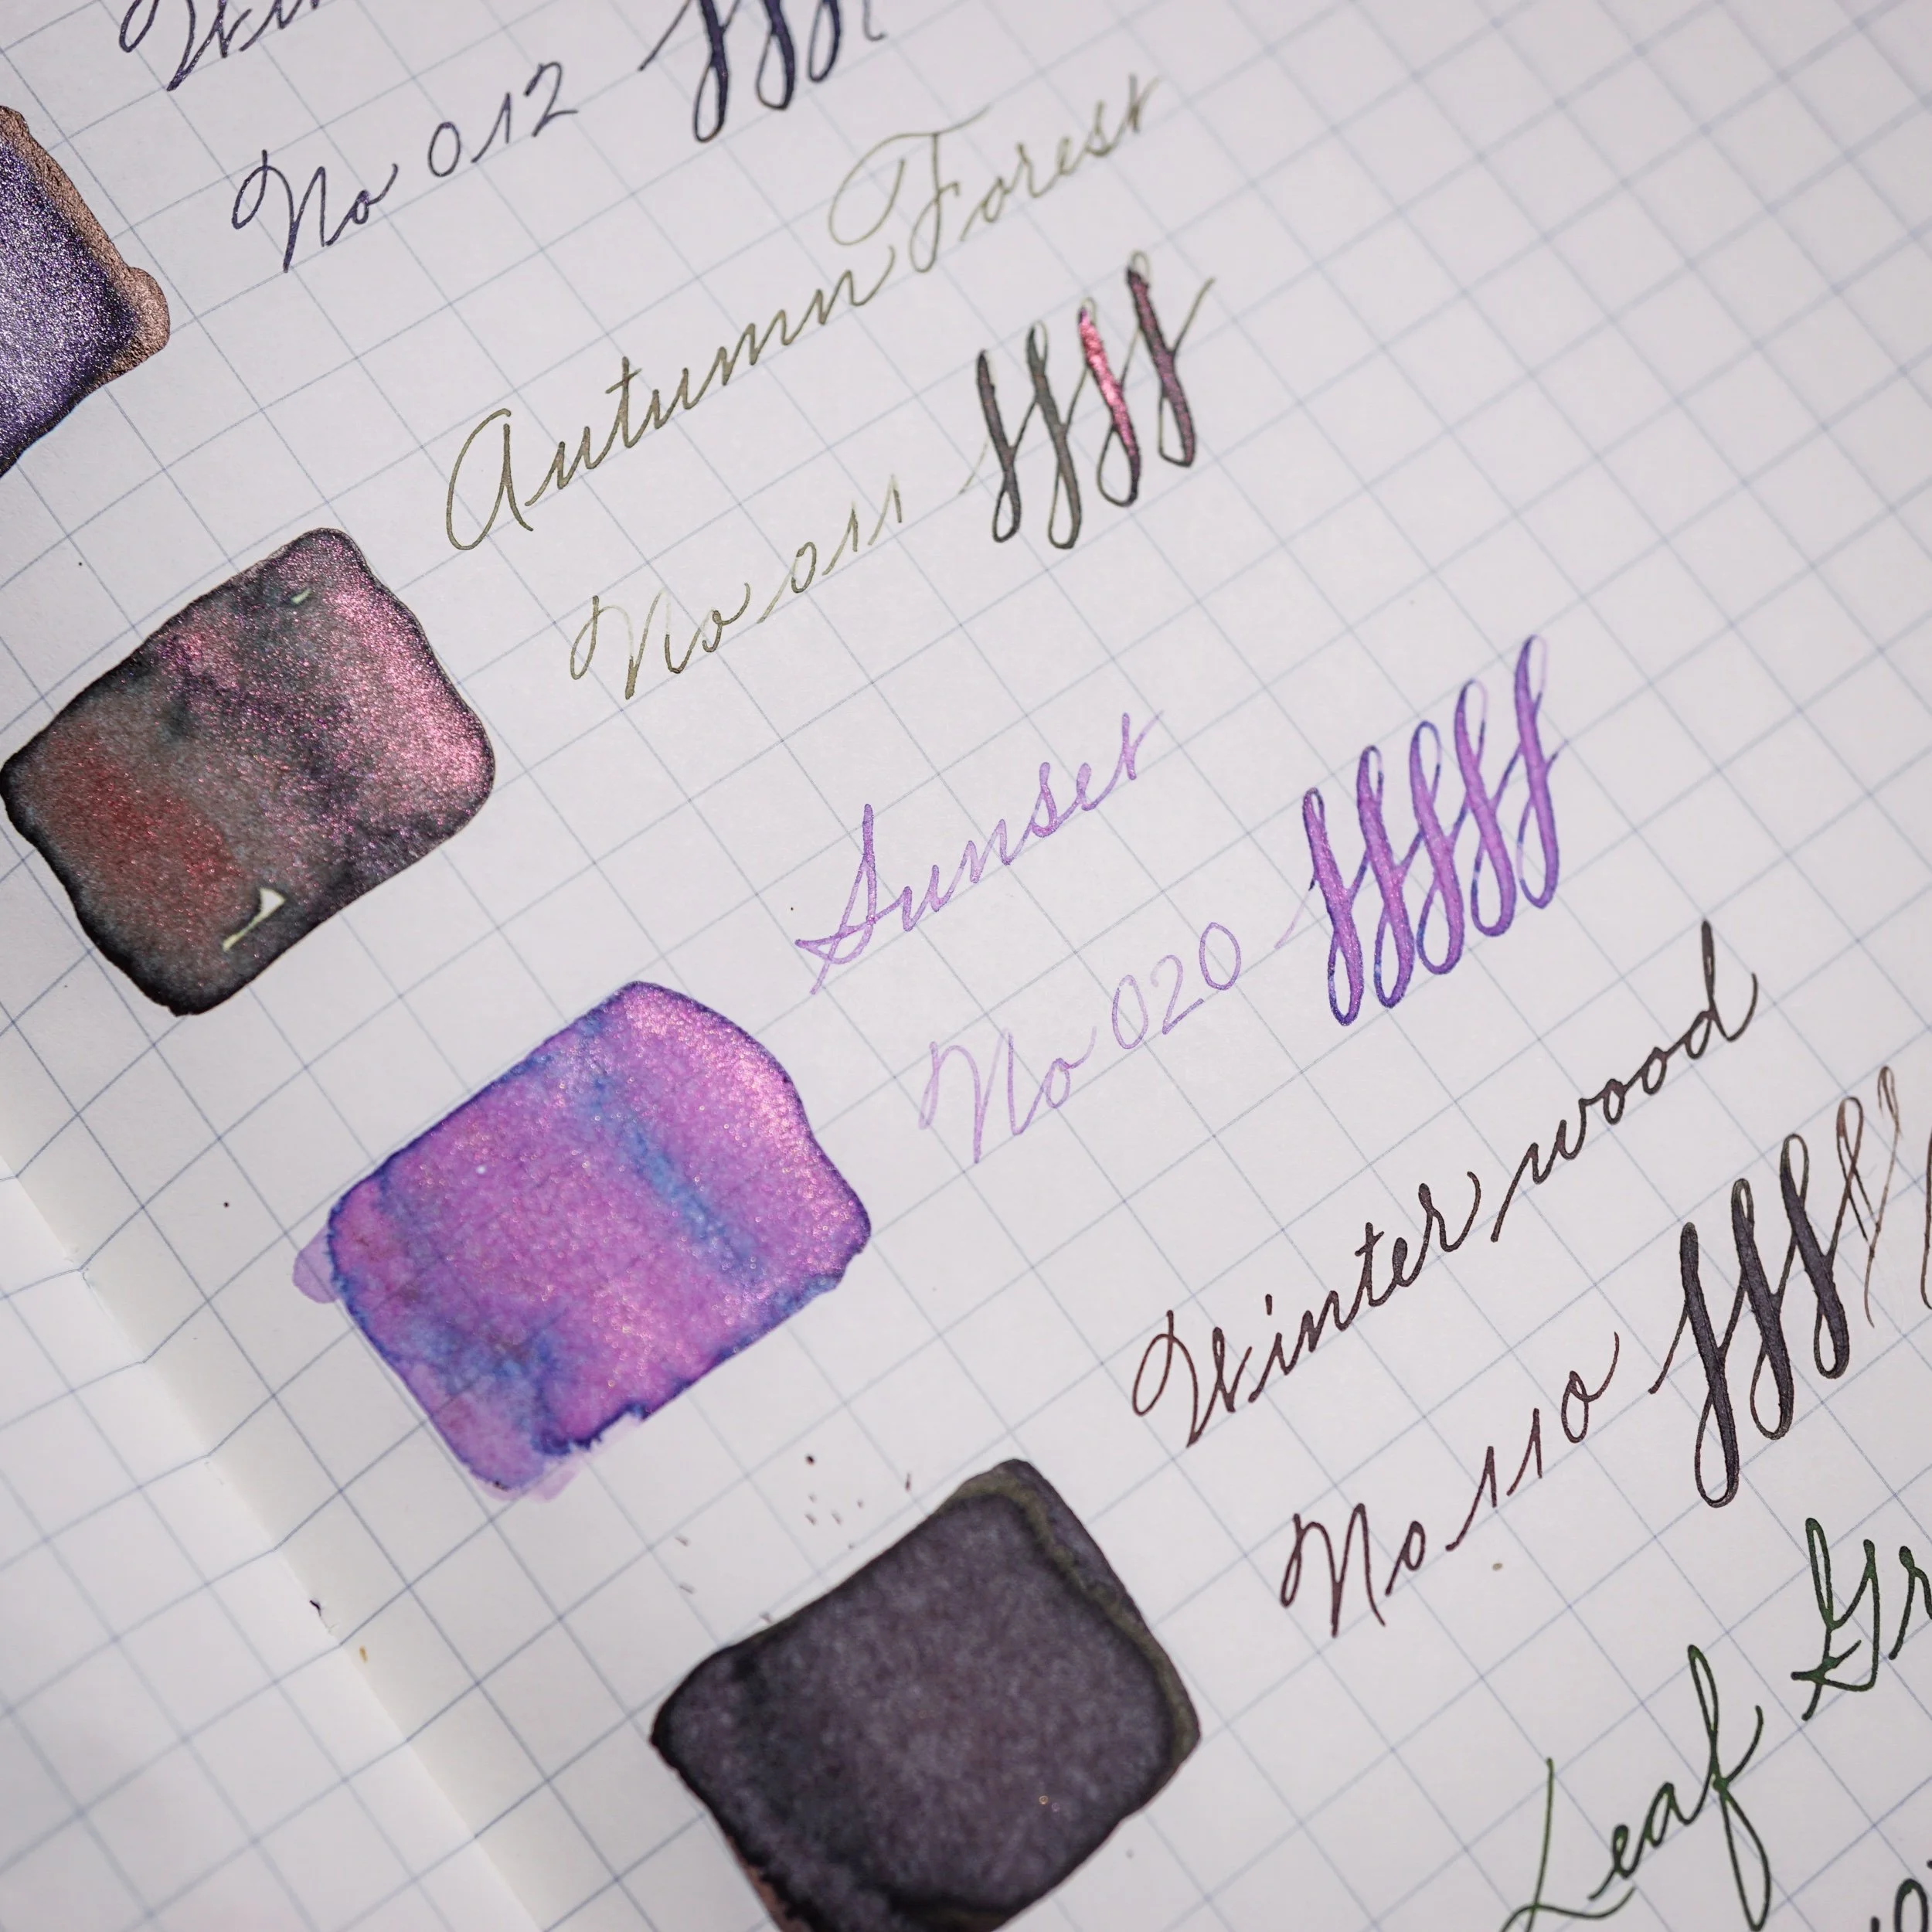 No 012
Autumn Forest
No 011
Sunset
No 020
Winter wood
No 110
Leaf